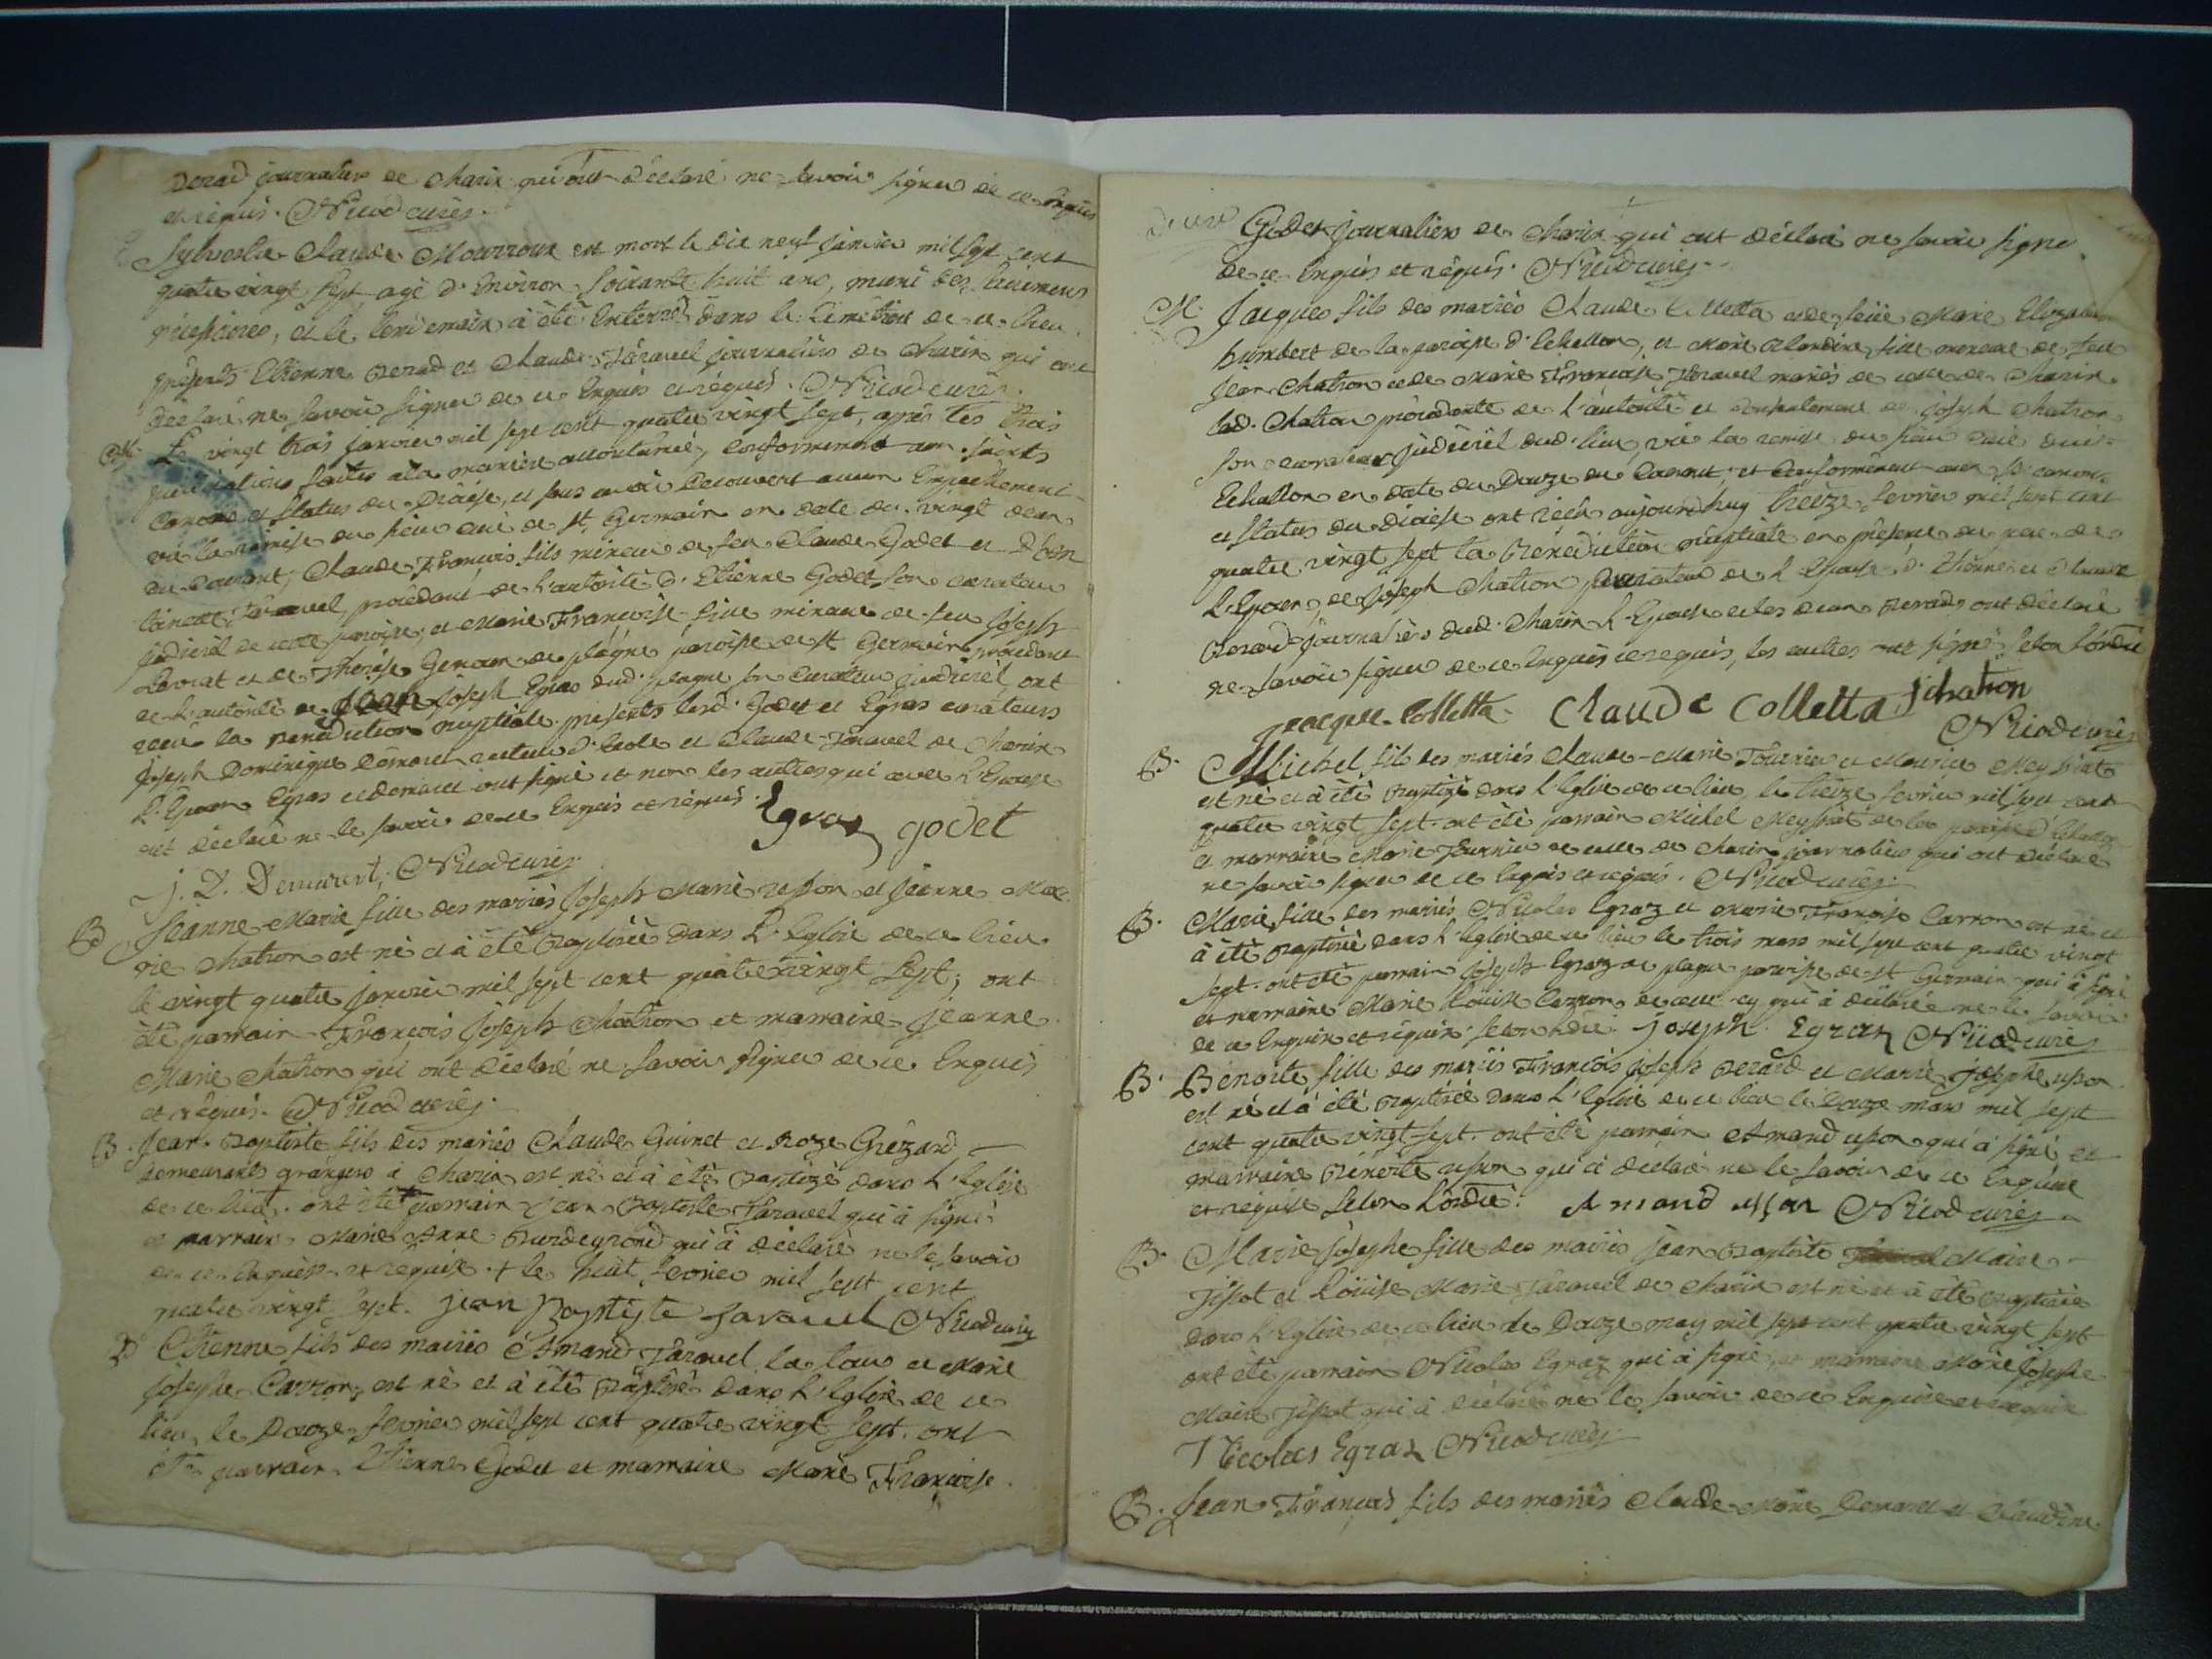 Berad journalier de Charix qui ont déclaré ne savoir signer de ce enquis
et requis. Nicod curé
Sylvestre Claude Mourroux est mort le dix neuf janvier mil sept cent
quatre vingt sept agé d'environ soixante huit ans, muni des sacrements
nécessaires, et le lendemain à été enterré dans le cimetière de ce lieu
présents Etienne Berad et Claude Jaravel journaliers de Charix qui ont
déclaré ne savoir signer de ce enquis et requis. Nicod curé
M. Le vingt trois janvier mil sept cent quatre vingt sept, après les trois
publications faites a la manière accoutumée, conformement aux saints
canons et statuts du diocèse, et sans avoir decouvert aucun empechement
vû la remise du sieur curé de St Germain en date du vingt deux
du courant, Claude François fils mineur de feu Claude Godet et
Jaravel, procédant de l'autorité d'Etienne Godet son curateur
judiciel de cette paroisse, et Marie Françoise fille mineure de feu Joseph
et de Therese de plagne paroisse de St Germain procedant
de l'autorité de Jean Joseph Egras dud. plagne son curateur judiciel ont
recu la bénédiction nuptiale. presents lesd. Godet et Egras curateurs
Joseph Dominique Demaret recteur d'école et Claude Jaravel de Charix
L'Epoux Egras et demaret ont signé et non les autres qui avec l'Epouse
ont déclaré ne le savoir de ce enquis et requis. Egraz godet
J. D. Demaret, Nicod curé
B Jeanne Marie fille des mariés Joseph Marie upson et Jeanne Ma
rie Chatron est né et à été baptisée dans l'Eglise de ce lieu
le vingt quatre janvier mil sept cent quatre vingt sept; ont
été parrain François Joseph Chatron et marraine Jeanne
Marie Chatron qui ont déclaré ne savoir signer de ce enquis
et requis. Nicod curé
B. Jean Baptiste fils des mariés Claude Guinet et Roze Grézard
demeurants grangers à Charix est né et à été baptizé dans l'Eglise
de ce lieu +. ont été parrain Jean Baptiste Jaravel qui à signé
et marraine Marie Anne Burdegrond qui à déclaré ne le savoir
de ce enquise et requise. + le huit fevrier mil sept cent
quatre vingt sept. jean Baptiste Jaravel Nicod curé
B Etienne fils des mariés Amand Jaravel la lour et Marie
Josephe Carron, est né et à été baptisé dans l'Eglise de ce
lieu le Douze fevrier mil sept cent quatre vingt sept. ont
été parrain Etienne Godet et marraine Marie Françoise
Godet journaliers de Charix qui ont déclaré ne savoir signer
de ce enquis et requis. Nicod curé
M. Jacques fils des mariés Claude Colletta et de feüe Marie Elizabeth
humbert de la paroisse d'Echallon, et Marie Claudine fille mineure de feu
Jean Chatron et de Marie Françoise Jaravel mariés de celle de Charix
lad. Chatron procedante de l'autorité et consentement de joseph Chatron
son curateur judiciel dud. lieu, vû la remise du sieur curé
Echallon en date du Douze du courant, et conformément aux St. canons
et statuts du diocèse ont recu aujourdhuy treize fevrier mil sept cent
quatre vingt sept la bénédiction nuptiale en présence du pere de
l'Epoux, de Joseph Chatron curateur de l'Epouse d'Etienne et Claude
Berard journaliers dud. Charix l'Epouse et les deux Berads ont déclaré
ne savoir signer de ce enquis et requis, les autres ont signé, selon l'ordce
jacque Colletta Claude Colletta j chatron
Nicod curé
B. Michel fils des mariés Claude Marie Tournier et Meyniat
est né et à été baptizé dans l'Eglise de ce lieu le treize fevrier mil sept cent
quatre vingt sept. ont été parrain Michel Meyniat de la paroisse d'Echallon
et marraine Marie Tournier de celle de Charix journaliers qui ont déclaré
ne savoir signer de ce enquis et requis. Nicod curé
B. Marie fille des mariés Nicolas Egraz et Marie Françoise Carron est né et
à été baptisée dans l'Eglise de ce lieu le trois mars mil sept cent quatre vingt
sept. ont été parrain Joseph Egraz de plagne paroisse de St Germain qui à signé
et marraine Marie Louise Carron de celle cy qui à déclarée ne le savoir
de ce enquise et requise selon l'ordce. joseph Egraz Nicod curé
B. Benoite fille des mariés François Joseph Berard et Marie Josephe upson
est né et à été baptisée dans l'Eglise de ce lieu le Douze mars mil sept
cent quatre vingt sept. ont été parrain Amand upson qui à signé et
marraine Benoite upson qui à declaré ne le savoir de ce enquise
et requise selon l'ordce. Amand upson Nicod curé
B. Marie Josephe fille des mariés Jean Baptiste Maire
Jipot et Loüise Marie Jaravel de Charix est né et à été baptisée
dans l'Eglise de ce lieu le Douze may mil sept cent quatre vingt sept
ont été parrain Nicolas Egraz qui à signé, et marraine Marie Josephe
Maire Jipot qui à déclaré ne le savoir de ce enquise et requise
Nicolas Egraz Nicod curé
B. Jean François fils des mariés Claude Marie Demaret et Claudine